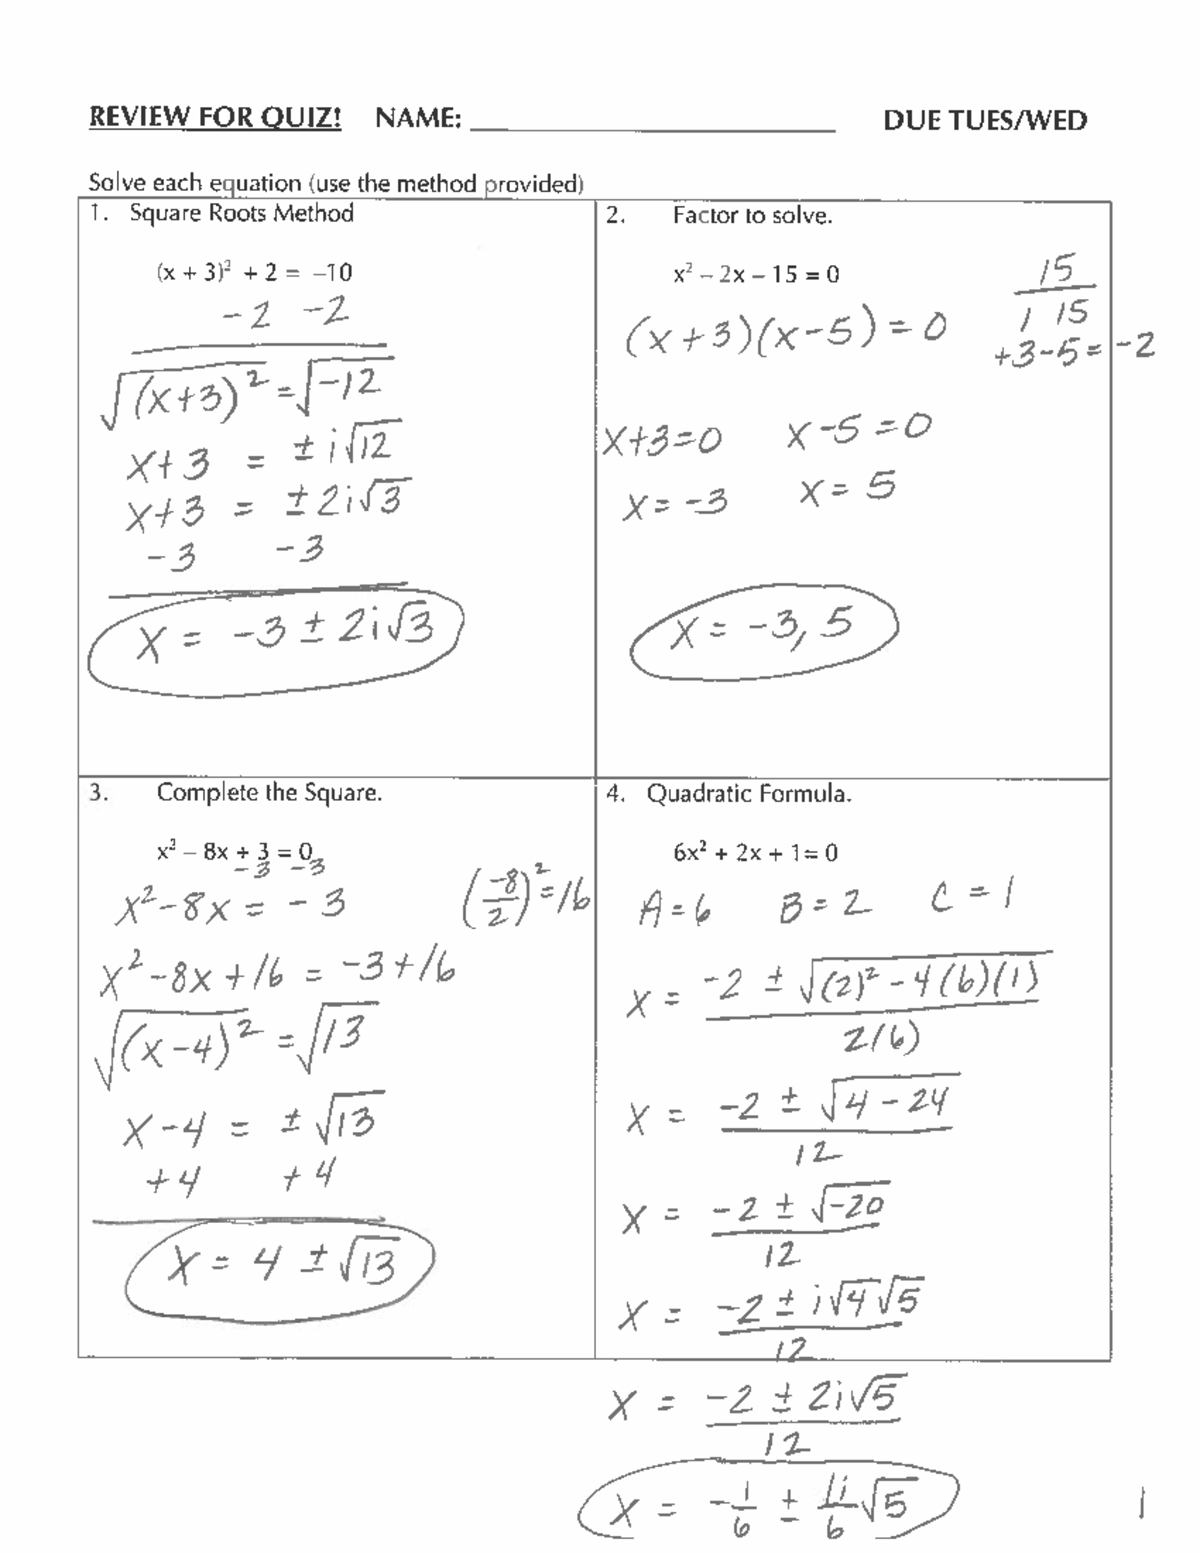 REVIEW FOR QUIZ! NAME: ____________________ DUE TUES/WED
Solve each equation (use the method provided)
1. Square Roots Method
(x + 3)² + 2 = –10
-2 -2
√(x+3)² = √-12
x+3 = ± i√12
x+3 = ± 2i√3
-3 -3
x = -3 ± 2i√3
2. Factor to solve.
x² – 2x – 15 = 0
15
1 15
+3-5=-2
(x+3)(x-5) = 0
x+3=0 x-5=0
x=-3 x=5
x=-3, 5
3. Complete the Square.
x² – 8x + 3 = 0
-3 -3
x²-8x = -3
(-8/2)²=16
x²-8x+16 = -3+16
√(x-4)² = √13
x-4 = ±√13
+4 +4
x = 4 ±√13
4. Quadratic Formula.
6x² + 2x + 1= 0
A=6 B=2 C=1
x = -2 ± √(2)²-4(6)(1)
2(6)
x = -2 ± √4-24
12
x = -2 ± √-20
12
x = -2 ± i√4√5
12
x = -2 ± 2i√5
12
x = -1/6 ± 1i/6 √5
1